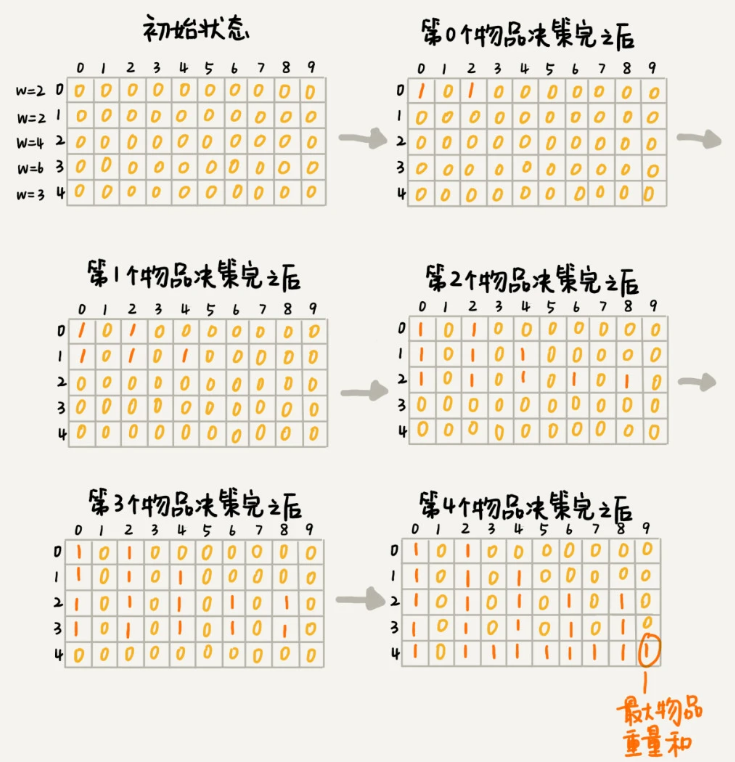 初始状态
0 1 2 3 4 5 6 7 8 9
w=2 0 0 0 0 0 0 0 0 0 0 0
w=2 1 0 0 0 0 0 0 0 0 0 0
w=4 2 0 0 0 0 0 0 0 0 0 0
w=6 3 0 0 0 0 0 0 0 0 0 0
w=3 4 0 0 0 0 0 0 0 0 0 0
第0个物品决策完之后
0 1 2 3 4 5 6 7 8 9
0 1 0 1 0 0 0 0 0 0 0
1 0 0 0 0 0 0 0 0 0 0
2 0 0 0 0 0 0 0 0 0 0
3 0 0 0 0 0 0 0 0 0 0
4 0 0 0 0 0 0 0 0 0 0
第1个物品决策完之后
0 1 2 3 4 5 6 7 8 9
0 1 0 1 0 0 0 0 0 0 0
1 1 0 1 0 1 0 0 0 0 0
2 0 0 0 0 0 0 0 0 0 0
3 0 0 0 0 0 0 0 0 0 0
4 0 0 0 0 0 0 0 0 0 0
第2个物品决策完之后
0 1 2 3 4 5 6 7 8 9
0 1 0 1 0 0 0 0 0 0 0
1 1 0 1 0 1 0 0 0 0 0
2 1 0 1 0 1 0 1 0 1 0
3 0 0 0 0 0 0 0 0 0 0
4 0 0 0 0 0 0 0 0 0 0
第3个物品决策完之后
0 1 2 3 4 5 6 7 8 9
0 1 0 1 0 0 0 0 0 0 0
1 1 0 1 0 1 0 0 0 0 0
2 1 0 1 0 1 0 1 0 1 0
3 1 0 1 0 1 0 1 0 1 0
4 0 0 0 0 0 0 0 0 0 0
第4个物品决策完之后
0 1 2 3 4 5 6 7 8 9
0 1 0 1 0 0 0 0 0 0 0
1 1 0 1 0 1 0 0 0 0 0
2 1 0 1 0 1 0 1 0 1 0
3 1 0 1 0 1 0 1 0 1 0
4 1 0 1 1 1 1 1 1 1 1
最大物品
重量和